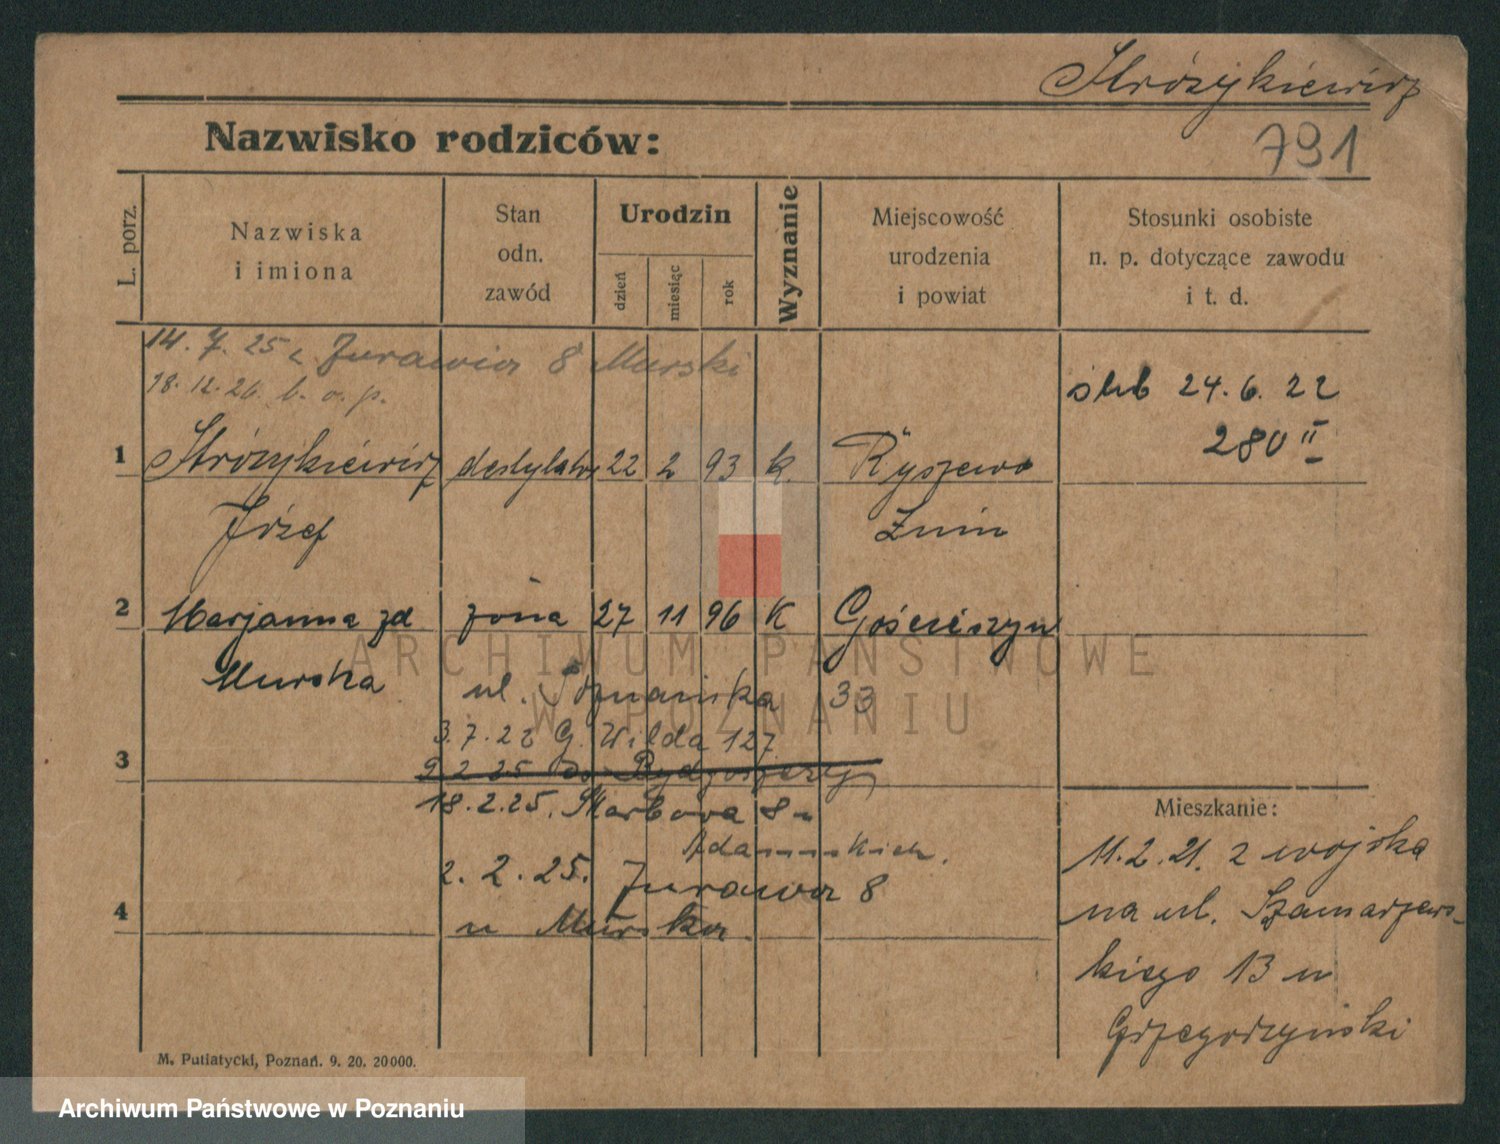 Stróżykiewicz
Nazwisko rodziców:
791
L. porz.
Nazwiska
i imiona
Stan
odn.
zawód
Urodzin
dzień
miesiąc
rok
Wyznanie
Miejscowość
urodzenia
i powiat
Stosunki osobiste
n. p. dotyczące zawodu
i t. d.
14. 7. 25 Żurawia 8 Murski
18. 12. 26 b. o. p.
ślub 24. 6. 22
280 II
1 Stróżykiewicz destylator 22 2 93 k. Ryszewo
Józef Żnin
2 Marjanna zd żona 27 11 96 K Gościeszyn
Murska ul. Poznańska 33
3. 7. 22 G. Wilda 127
3
9 2 25 do Bydgoszczy
18. 2. 25. Skarbowa 8 u
Adamskich.
2. 2. 25. Żurawia 8
4
u Murska
Mieszkanie:
11. 2. 21. z wojska
na ul. Szamarzews-
kiego 13 u
Grzegorzyński
M. Putiatycki, Poznań. 9. 20. 20000.
ARCHIWUM PAŃSTWOWE
W POZNANIU
Archiwum Państwowe w Poznaniu